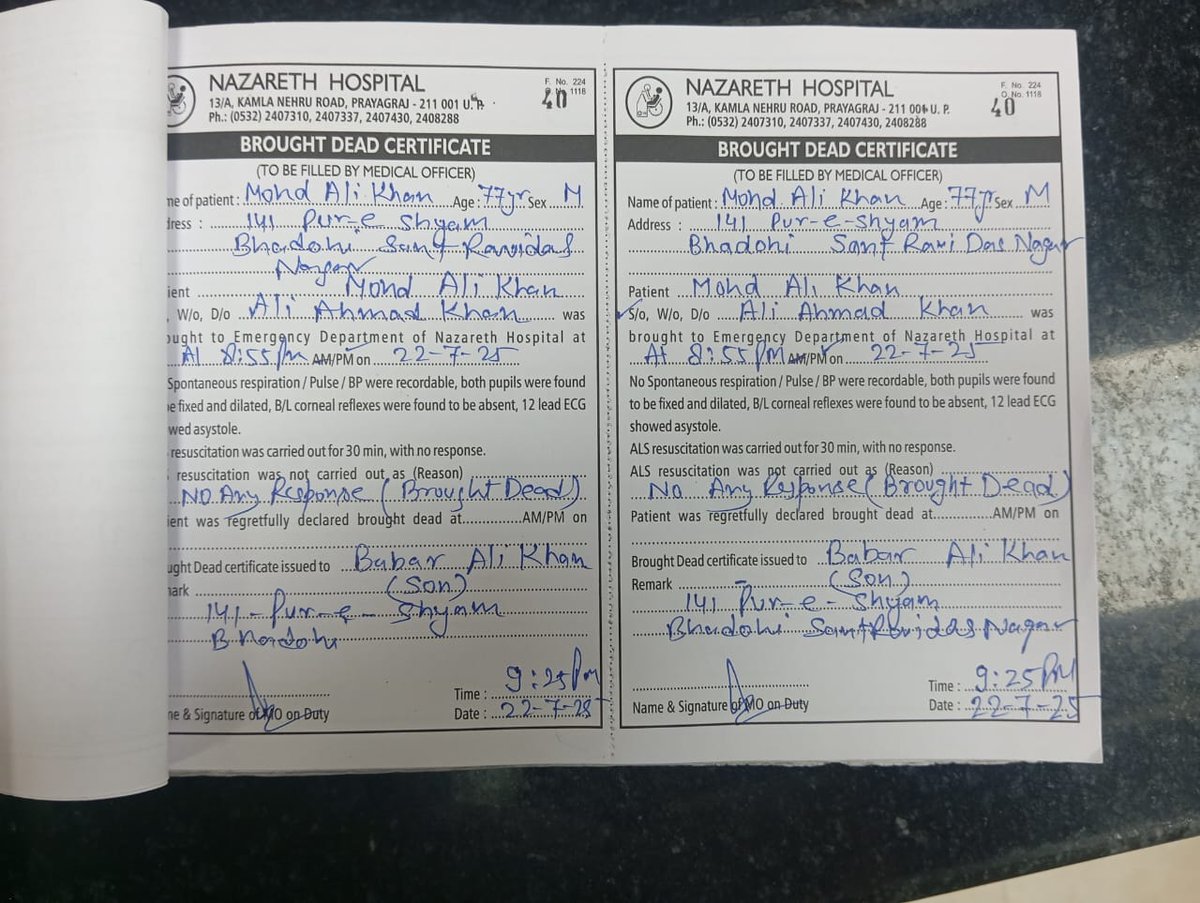 NAZARETH HOSPITAL
F. No. 224
No. 1118
13/A, KAMLA NEHRU ROAD, PRAYAGRAJ - 211 001 U.P.
40
Ph.: (0532) 2407310, 2407337, 2407430, 2408288
BROUGHT DEAD CERTIFICATE
(TO BE FILLED BY MEDICAL OFFICER)
me of patient : Mohd Ali Khan Age : 77yr Sex M
dress : 141 Pur-e Shyam
Bhadohi Sant Ravidas
Nagar
ient Mohd Ali Khan
, W/o, D/o Ali Ahmad Khan was
ought to Emergency Department of Nazareth Hospital at
At 8:55 PM AM/PM on 22-7-25
Spontaneous respiration / Pulse / BP were recordable, both pupils were found
e fixed and dilated, B/L corneal reflexes were found to be absent, 12 lead ECG
wed asystole.
resuscitation was carried out for 30 min, with no response.
resuscitation was not carried out as (Reason)
NO Any Response (Brought Dead)
ient was regretfully declared brought dead at AM/PM on
ught Dead certificate issued to Babar Ali Khan
ark (Son)
141-Pur-e-Shyam
Bhadohi
Time : 9:25 PM
ne & Signature of MO on Duty Date : 22-7-25
NAZARETH HOSPITAL
F. No. 224
O. No. 1118
13/A, KAMLA NEHRU ROAD, PRAYAGRAJ - 211 001 U. P.
40
Ph.: (0532) 2407310, 2407337, 2407430, 2408288
BROUGHT DEAD CERTIFICATE
(TO BE FILLED BY MEDICAL OFFICER)
Name of patient : Mohd Ali Khan Age : 77yr Sex M
Address : 141 Pur-e-Shyam
Bhadohi Sant Ravi Das Nagar
Patient Mohd Ali Khan
S/o, W/o, D/o Ali Ahmad Khan was
brought to Emergency Department of Nazareth Hospital at
At 8:55 PM AM/PM on 22-7-25
No Spontaneous respiration / Pulse / BP were recordable, both pupils were found
to be fixed and dilated, B/L corneal reflexes were found to be absent, 12 lead ECG
showed asystole.
ALS resuscitation was carried out for 30 min, with no response.
ALS resuscitation was not carried out as (Reason)
No Any Response (Brought Dead)
Patient was regretfully declared brought dead at AM/PM on
Brought Dead certificate issued to Babar Ali Khan
Remark (Son)
141 Pur-e-Shyam
Bhadohi Sant Ravidas Nagar
Time : 9:25 PM
Name & Signature of MO on Duty Date : 22-7-25